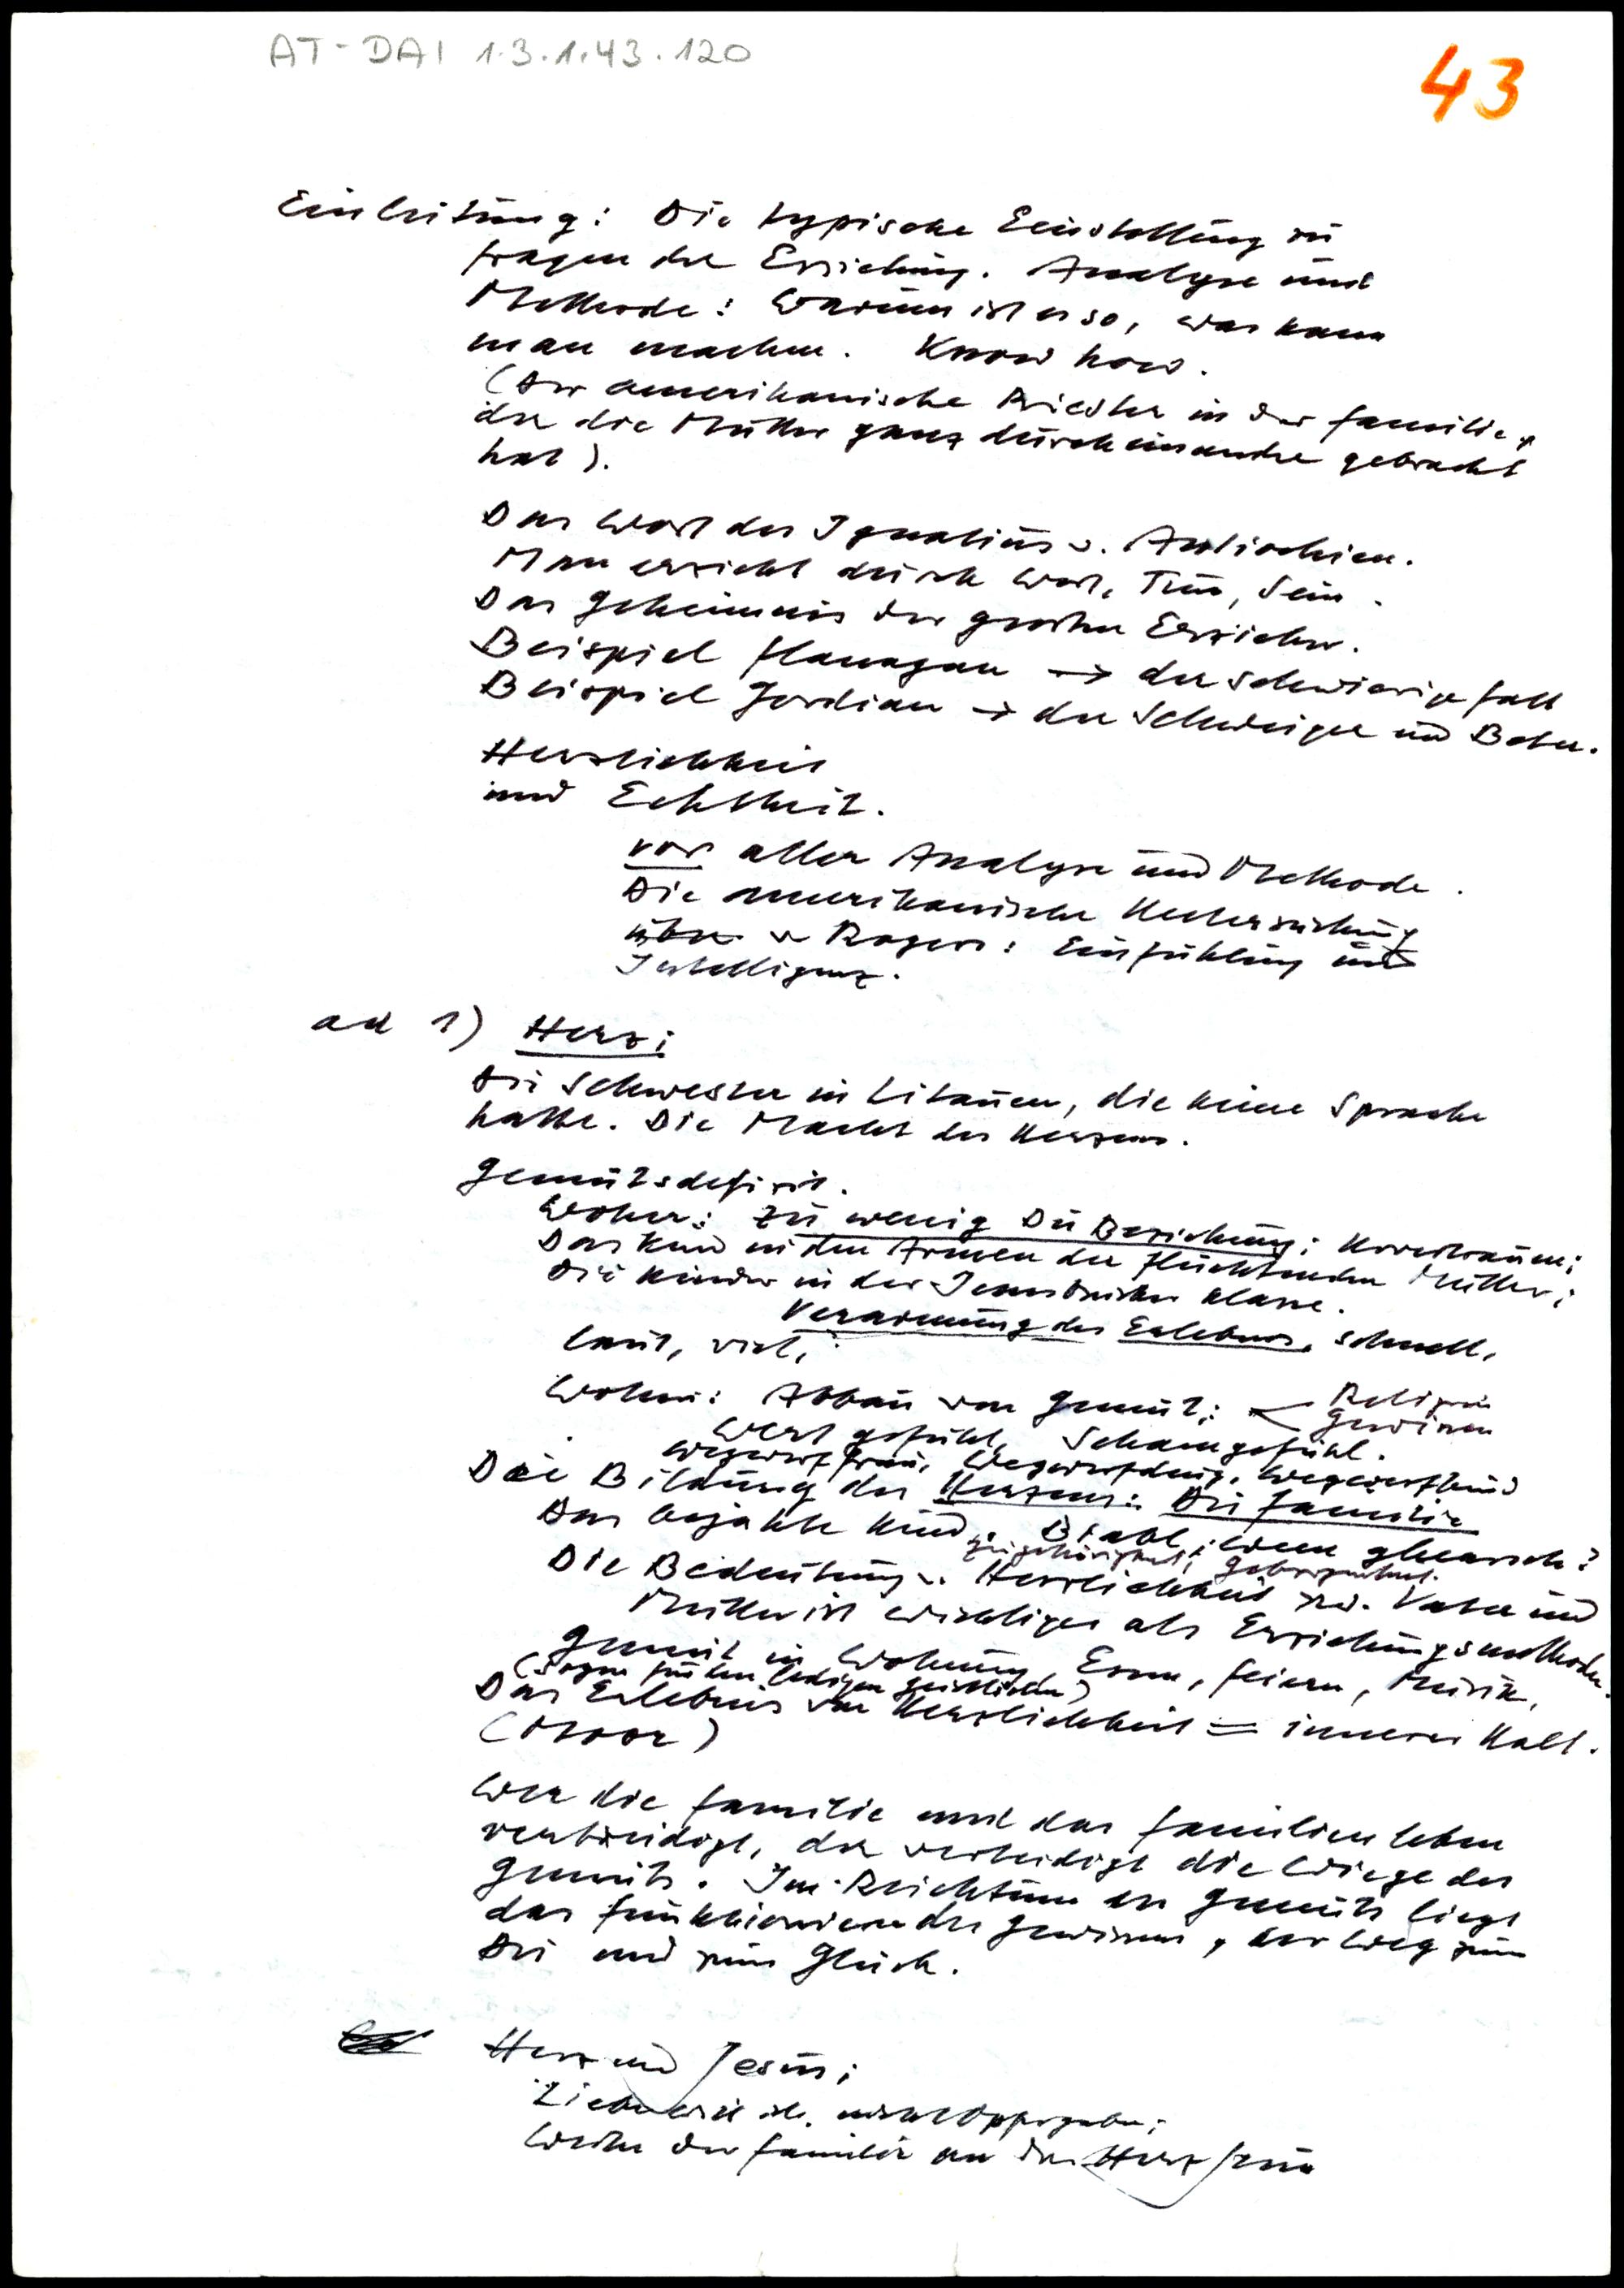 AT-DAI 1.3.1.43.120
43
Einleitung: Die typische Einstellung zu
Fragen der Erziehung. Analyse und
Methode: Warum ist er so, was kann
man machen. Know how.
(Der amerikanische Priester in der Familie,
der die Mutter ganz durcheinander gebracht
hat).
Das Wort des Ignatius v. Antiochien.
Man erzieht durch Wort, Tun, Sein.
Das Geheimnis der großen Erzieher.
Beispiel Flanagan → der schwierige Fall
Beispiel Jordian → der Schweiger und Beter.
Herzlichkeit
und Echtheit.
vor aller Analyse und Methode.
Die amerikanische Untersuchung
über v Rogers: Einfühlung und
Intelligenz.
ad 1) Herz:
Die Schwester in Litauen, die keine Sprache
hatte. Die Macht des Herzens.
Gemütsdefizit.
Woher: Zu wenig Du Beziehung; Urvertrauen;
Das Kind in den Armen der flüchtenden Mutter;
Die Kinder in der Innsbrucker Klasse.
Verarmung des Erlebens, schnell,
laut, viel,
Wohin: Abbau von Gemüt: < Religion
Gewissen
Wertgefühl, Schamgefühl.
Wegwerffrau, Wegwerfding, Wegwerfkind
Die Bildung des Herzens: Die Familie
Das bejahte Kind.
Zugehörigkeit, Geborgenheit.
Die Bedeutung v. Herzlichkeit zw. Vater und
Mutter ist wichtiger als Erziehungsmethoden.
Gemüt in Wohnung, Essen, Feiern, Musik,
(Sogar für den ledigen Geistlichen)
Das Erlebnis von Herzlichkeit = innerer Halt.
(Moor)
Wer die Familie und das Familienleben
verteidigt, der verteidigt die Wiege des
Gemüts. Im Reichtum des Gemüts liegt
das Funktionieren des Gewissens, der Weg zum
Du und zum Glück.
Herz und Jesus;
Weihe der Familie an das Herz Jesu